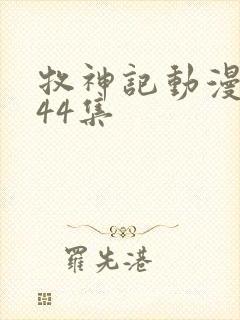 牧神記動漫
44集
羅先港